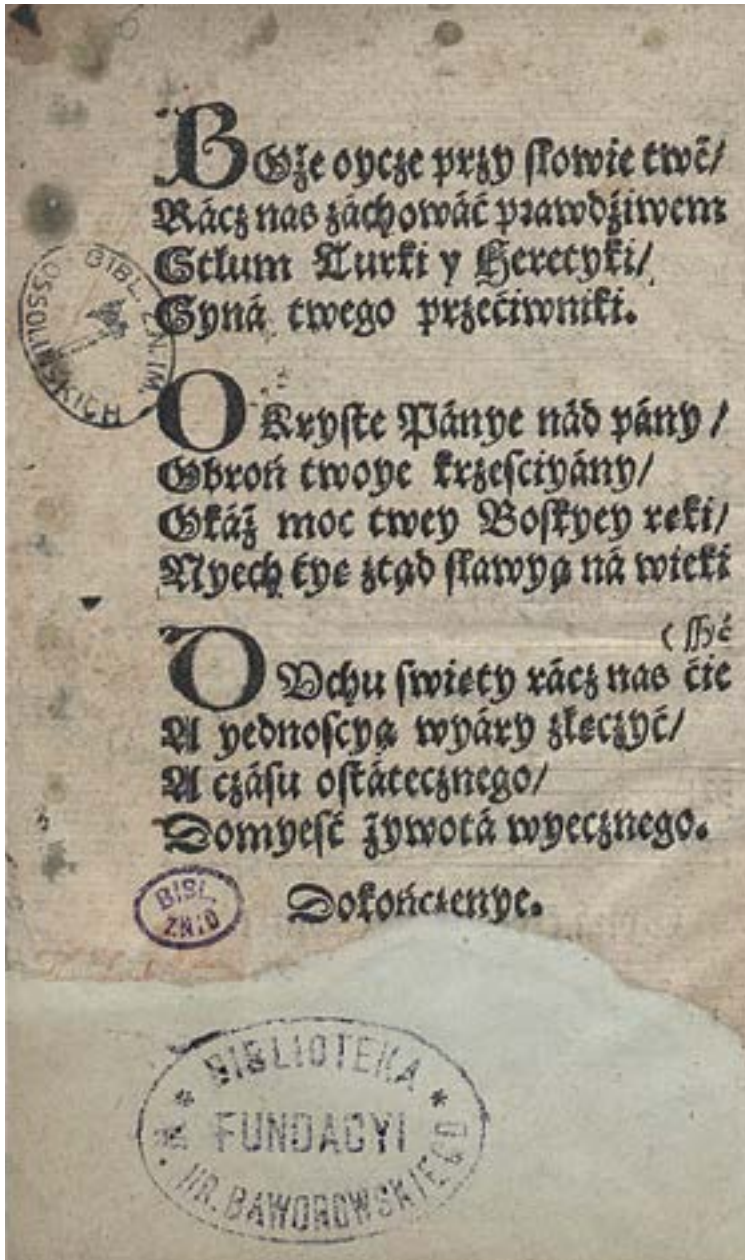 BOże oycze przy słowie twẽ/
Rácz nas záchowáć prawdźiwem
Stlum Turki y Heretyki/
Syná twego przećiwniki.
O Kryste Pánye nád pány/
Obroń twoye krzesciyány/
Okáż moc twey Boskyey ręki/
Nyech ćye ztąd sławyą ná wieki
(ſhć
O Duchu swięty rácz nas ćie
A yednoscyą wyáry złeczyć/
A czásu ostátecznego/
Domyesć żywotá wyecznego.
Dokończenye.
BIBL. Z.N.IM.
OSSOLIŃSKICH
BIBL.
ZN.I.O
BIBLIOTEKA
FUNDACYI
W. HR. BAWOROWSKIEGO